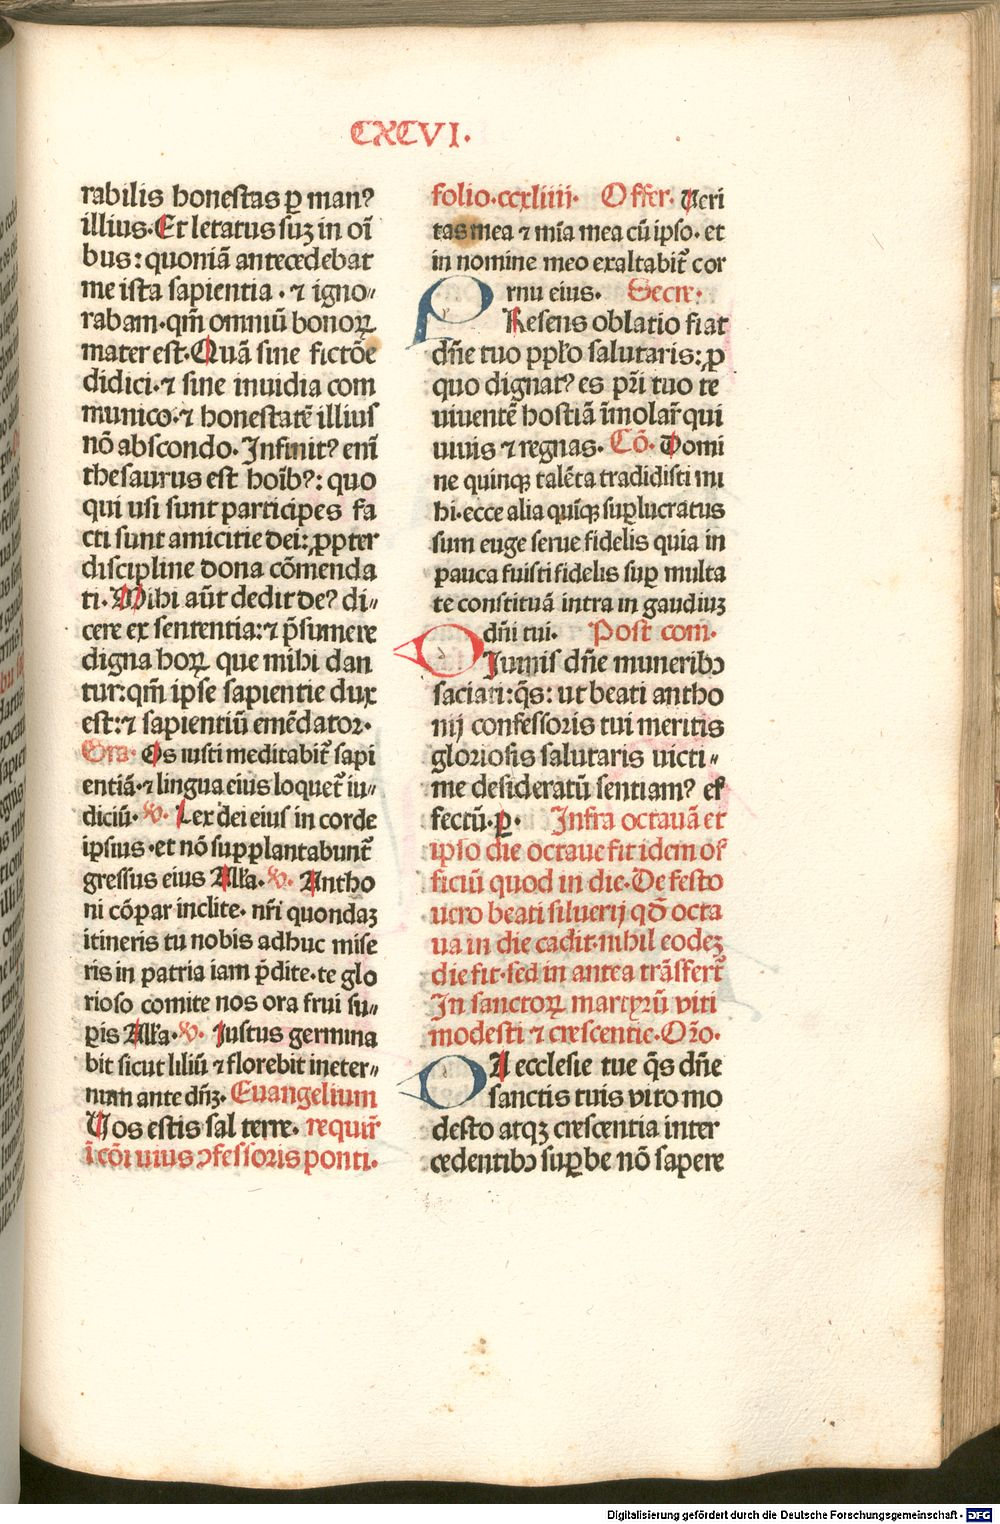 CXCVI.
rabilis honestas ꝑ manꝰ
illius. Et letatus suꝫ in oī
bus: quoniā antecedebat
me ista sapientia. ⁊ igno〃
rabam. qm̄ omniū bonoꝝ
mater est. Quā sine fictōe
didici. ⁊ sine inuidia com
munico. ⁊ honestatē illius
nō abscondo. Infinitꝰ enī
thesaurus est hoībꝰ: quo
qui usi sunt participes fa
cti sunt amicitie dei: ꝓpter
discipline dona cōmenda
ti. Mihi aūt dedit deꝰ di〃
cere ex sententia: ⁊ p̄sumere
digna hoꝝ que mihi dan
tur: qm̄ ipse sapientie dux
est: ⁊ sapientiū emēdator.
Gra. Os iusti meditabit̄ sapi
entiā. ⁊ lingua eius loquet̄ iu〃
diciū. ℣. Lex dei eius in corde
ipsius. et nō supplantabunt̄
gressus eius Allꝛa. ℣. Antho
ni cōpar inclite. nr̄i quondaꝫ
itineris tu nobis adhuc mise
ris in patria iam p̄dite. te glo
rioso comite nos ora frui su〃
ꝑis Allꝛa. ℣. Iustus germina
bit sicut liliū ⁊ florebit ineter〃
num ante dn̄ꝫ. Euangelium
Vos estis sal terre. requir̄
ī cōi uius ꝯfessoris ponti.
folio. ccxliiii. Offer. Veri
tas mea ⁊ mīa mea cū ipso. et
in nomine meo exaltabit̄ cor
rnu eius. Secre:
PResens oblatio fiat
dn̄e tuo ppl̄o salutaris: ꝓ
quo dignatꝰ es pr̄i tuo te
uiuentē hostiā īmolar̄ qui
uiuis ⁊ regnas. Cō. Domi
ne quinqꝫ talēta tradidisti mi
hi. ecce alia quīqꝫ suꝑlucratus
sum euge serue fidelis quia in
pauca fuisti fidelis suꝑ multa
te constituā intra in gaudiuꝫ
dn̄i tui. Post com.
DIuinis dn̄e muneribꝫ
saciati: q̄s: ut beati antho
nij confessoris tui meritis
gloriosis salutaris uicti〃
me desideratū sentiamꝰ ef
fectū. ꝑ. Infra octauā et
ipso die octaue fit idem of
ficiū quod in die. De festo
uero beati siluerij qđ octa
ua in die cadit. nihil eodeꝫ
die fit. sed in antea trāsfert̄
In sanctoꝝ martyrū viti
modesti ⁊ crescentie. Oꝛo.
DA ecclesie tue q̄s dn̄e
sanctis tuis vito mo
desto atqꝫ crescentia inter
cedentibꝫ suꝑbe nō sapere
Digitalisierung gefördert durch die Deutsche Forschungsgemeinschaft - DFG